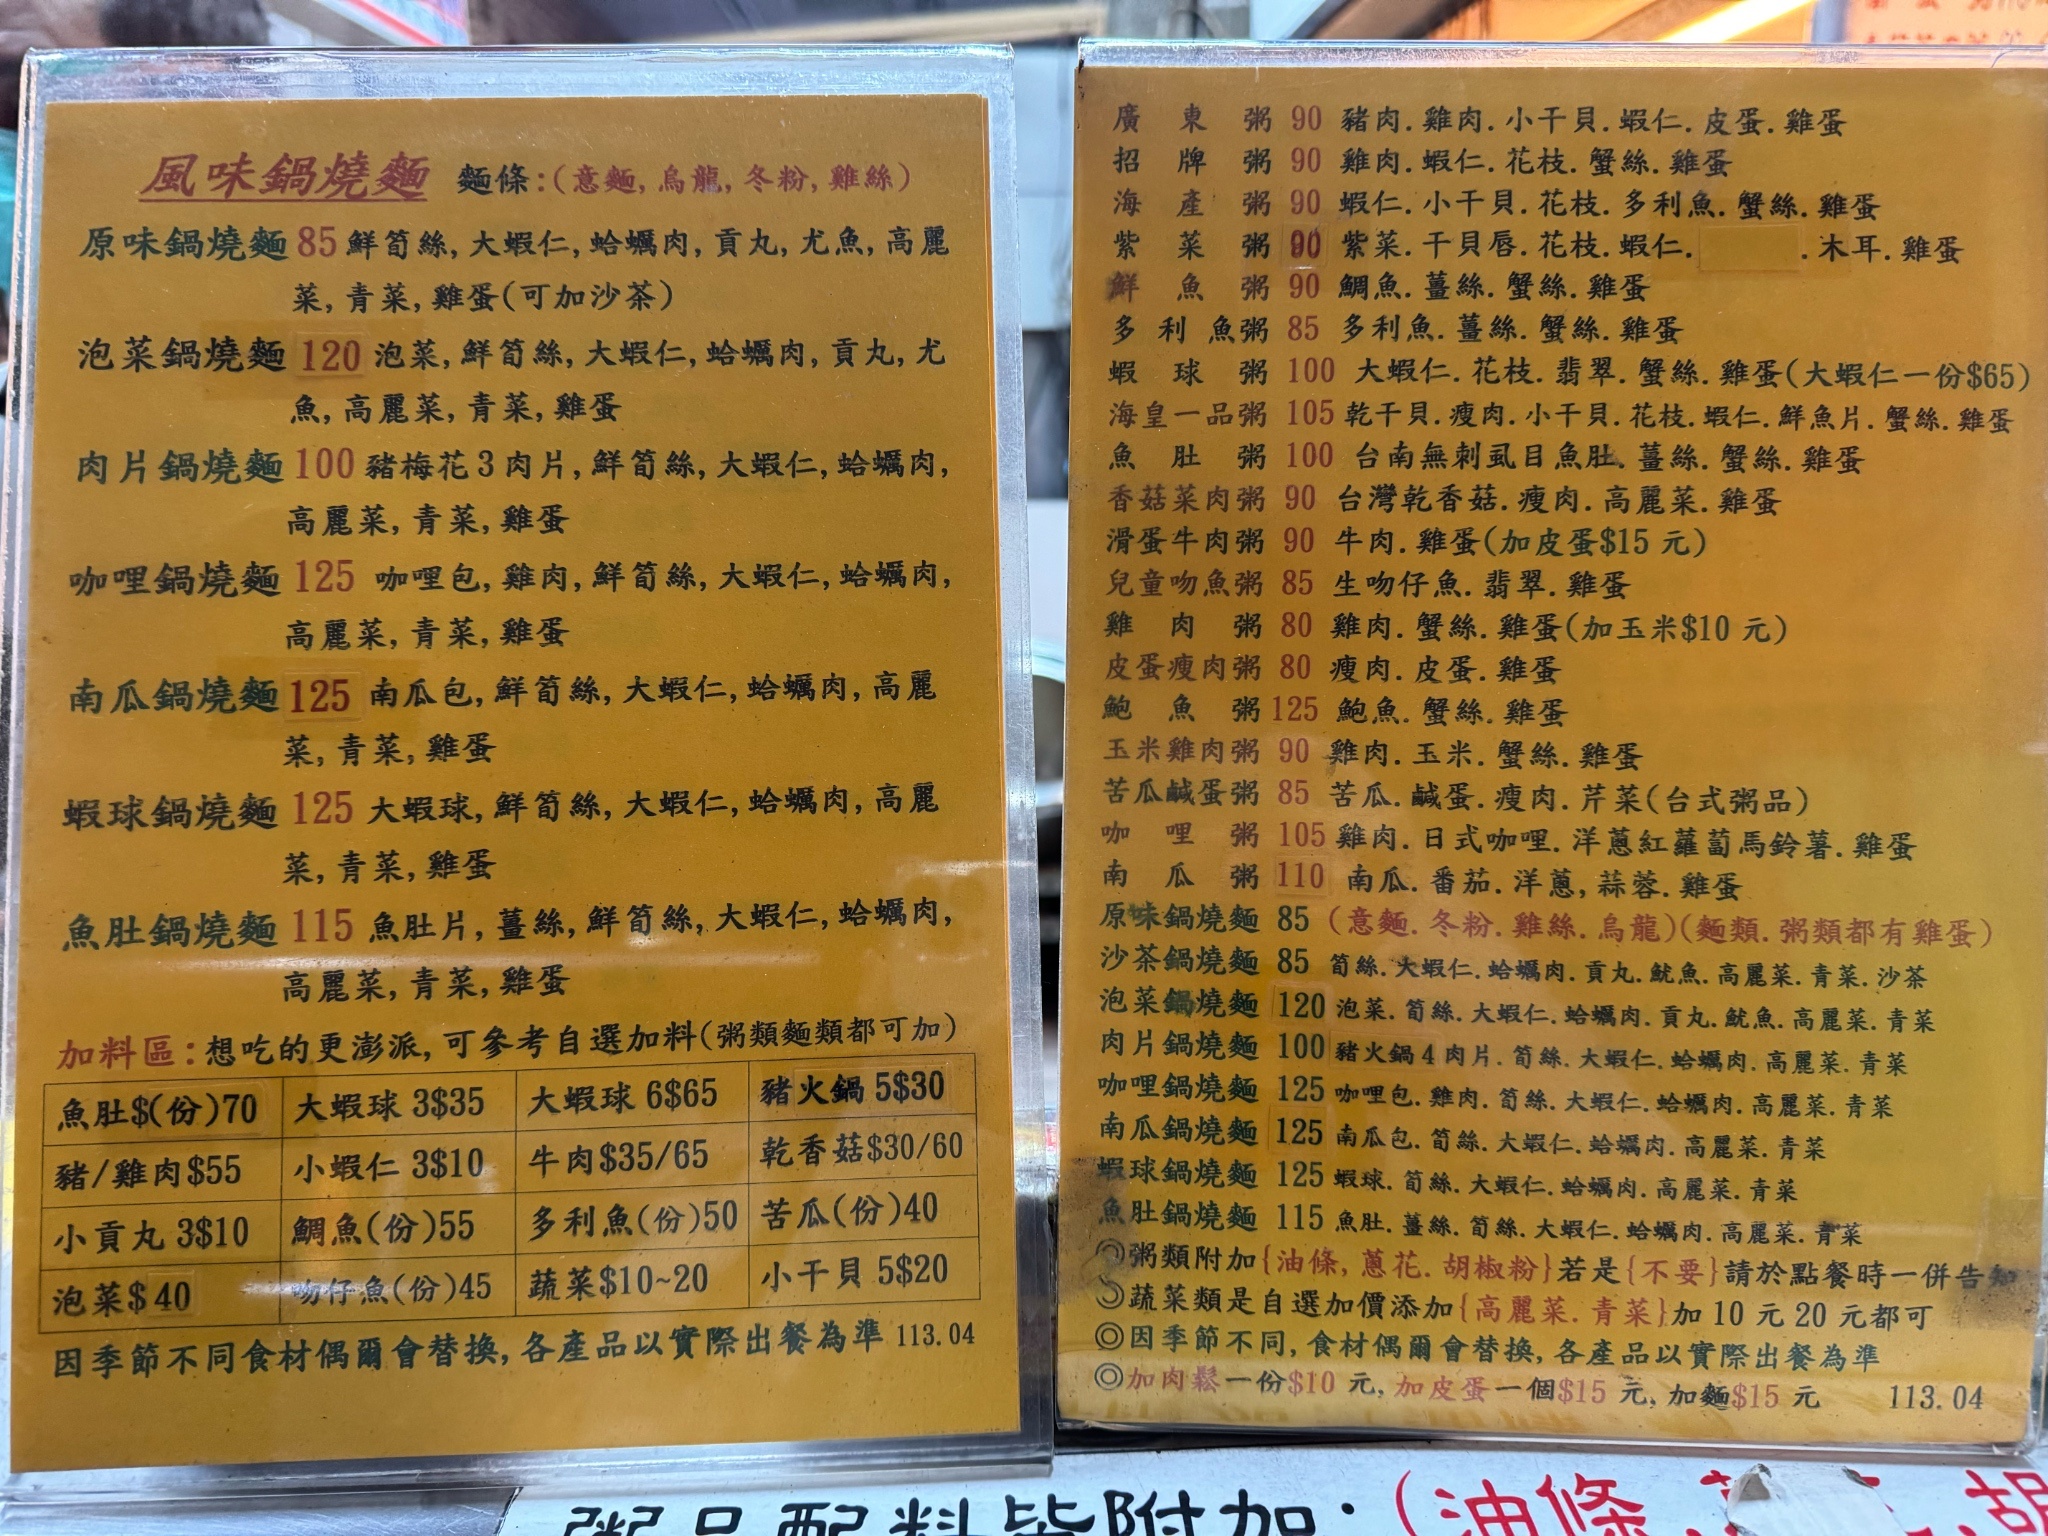 風味鍋燒麵 麵條:(意麵,烏龍,冬粉,雞絲)
原味鍋燒麵 85 鮮筍絲,大蝦仁,蛤蠣肉,貢丸,尤魚,高麗
菜,青菜,雞蛋(可加沙茶)
泡菜鍋燒麵 120 泡菜,鮮筍絲,大蝦仁,蛤蠣肉,貢丸,尤
魚,高麗菜,青菜,雞蛋
肉片鍋燒麵 100 豬梅花3肉片,鮮筍絲,大蝦仁,蛤蠣肉,
高麗菜,青菜,雞蛋
咖哩鍋燒麵 125 咖哩包,雞肉,鮮筍絲,大蝦仁,蛤蠣肉,
高麗菜,青菜,雞蛋
南瓜鍋燒麵 125 南瓜包,鮮筍絲,大蝦仁,蛤蠣肉,高麗
菜,青菜,雞蛋
蝦球鍋燒麵 125 大蝦球,鮮筍絲,大蝦仁,蛤蠣肉,高麗
菜,青菜,雞蛋
魚肚鍋燒麵 115 魚肚片,薑絲,鮮筍絲,大蝦仁,蛤蠣肉,
高麗菜,青菜,雞蛋
加料區:想吃的更澎派,可參考自選加料(粥類麵類都可加)
魚肚$(份)70 大蝦球 3$35 大蝦球 6$65 豬火鍋 5$30
豬/雞肉$55 小蝦仁 3$10 牛肉$35/65 乾香菇$30/60
小貢丸 3$10 鯛魚(份)55 多利魚(份)50 苦瓜(份)40
泡菜$40 吻仔魚(份)45 蔬菜$10~20 小干貝 5$20
因季節不同食材偶爾會替換,各產品以實際出餐為準 113.04
廣東粥 90 豬肉.雞肉.小干貝.蝦仁.皮蛋.雞蛋
招牌粥 90 雞肉.蝦仁.花枝.蟹絲.雞蛋
海產粥 90 蝦仁.小干貝.花枝.多利魚.蟹絲.雞蛋
紫菜粥 90 紫菜.干貝唇.花枝.蝦仁. .木耳.雞蛋
鮮魚粥 90 鯛魚.薑絲.蟹絲.雞蛋
多利魚粥 85 多利魚.薑絲.蟹絲.雞蛋
蝦球粥 100 大蝦仁.花枝.翡翠.蟹絲.雞蛋(大蝦仁一份$65)
海皇一品粥 105 乾干貝.瘦肉.小干貝.花枝.蝦仁.鮮魚片.蟹絲.雞蛋
魚肚粥 100 台南無刺虱目魚肚.薑絲.蟹絲.雞蛋
香菇菜肉粥 90 台灣乾香菇.瘦肉.高麗菜.雞蛋
滑蛋牛肉粥 90 牛肉.雞蛋(加皮蛋$15 元)
兒童吻魚粥 85 生吻仔魚.翡翠.雞蛋
雞肉粥 80 雞肉.蟹絲.雞蛋(加玉米$10 元)
皮蛋瘦肉粥 80 瘦肉.皮蛋.雞蛋
鮑魚粥 125 鮑魚.蟹絲.雞蛋
玉米雞肉粥 90 雞肉.玉米.蟹絲.雞蛋
苦瓜鹹蛋粥 85 苦瓜.鹹蛋.瘦肉.芹菜(台式粥品)
咖哩粥 105 雞肉.日式咖哩.洋蔥紅蘿蔔馬鈴薯.雞蛋
南瓜粥 110 南瓜.番茄.洋蔥,蒜蓉.雞蛋
原味鍋燒麵 85 (意麵.冬粉.雞絲.烏龍)(麵類.粥類都有雞蛋)
沙茶鍋燒麵 85 筍絲.大蝦仁.蛤蠣肉.貢丸.魷魚.高麗菜.青菜.沙茶
泡菜鍋燒麵 120 泡菜.筍絲.大蝦仁.蛤蠣肉.貢丸.魷魚.高麗菜.青菜
肉片鍋燒麵 100 豬火鍋4肉片.筍絲.大蝦仁.蛤蠣肉.高麗菜.青菜
咖哩鍋燒麵 125 咖哩包.雞肉.筍絲.大蝦仁.蛤蠣肉.高麗菜.青菜
南瓜鍋燒麵 125 南瓜包.筍絲.大蝦仁.蛤蠣肉.高麗菜.青菜
蝦球鍋燒麵 125 蝦球.筍絲.大蝦仁.蛤蠣肉.高麗菜.青菜
魚肚鍋燒麵 115 魚肚.薑絲.筍絲.大蝦仁.蛤蠣肉.高麗菜.青菜
◎粥類附加{油條,蔥花.胡椒粉}若是{不要}請於點餐時一併告知
◎蔬菜類是自選加價添加{高麗菜.青菜}加 10 元 20 元都可
◎因季節不同,食材偶爾會替換,各產品以實際出餐為準
◎加肉鬆一份$10 元,加皮蛋一個$15 元,加麵$15 元 113.04
粥品配料皆附加:(油條